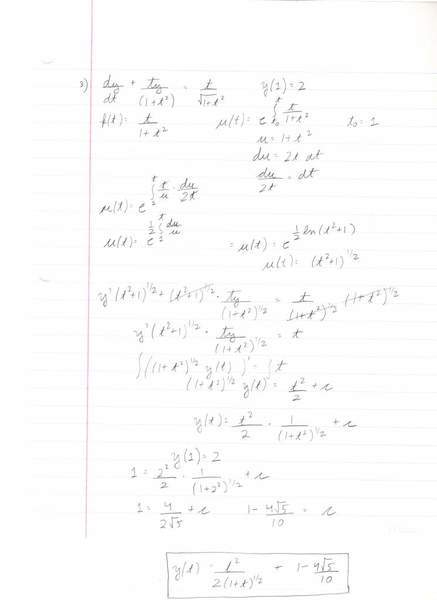 3) dy/dt + ty/(1+t²) = t/√1+t² y(1)=2
p(t): t/1+t² u(t): e ∫ t₀ t t/1+t² t₀=1
u=1+t²
du=2t dt
du/2t = dt
u(t): e ∫ 2 t t/u · du/2t
u(t): e 1/2 ∫ 2 t du/u = u(t): e 1/2 ln(t²+1)
u(t)= (t²+1)^1/2
y'(t²+1)^1/2 + (t²+1)^1/2 · ty/(1+t²)^1/2 = t/(1+t²)^1/2 (1+t²)^1/2
y'(t²+1)^1/2 · ty/(1+t²)^1/2 = t
∫((1+t²)^1/2 y(t))' = ∫t
(1+t²)^1/2 y(t) = t²/2 + c
y(t)= t²/2 · 1/(1+t²)^1/2 + c
y(1)=2
1= 2²/2 · 1/(1+2²)^1/2 + c
1= 4/2√5 + c 1- 4√5/10 = c
y(t) = t²/2(1+t)^1/2 + 1- 4√5/10